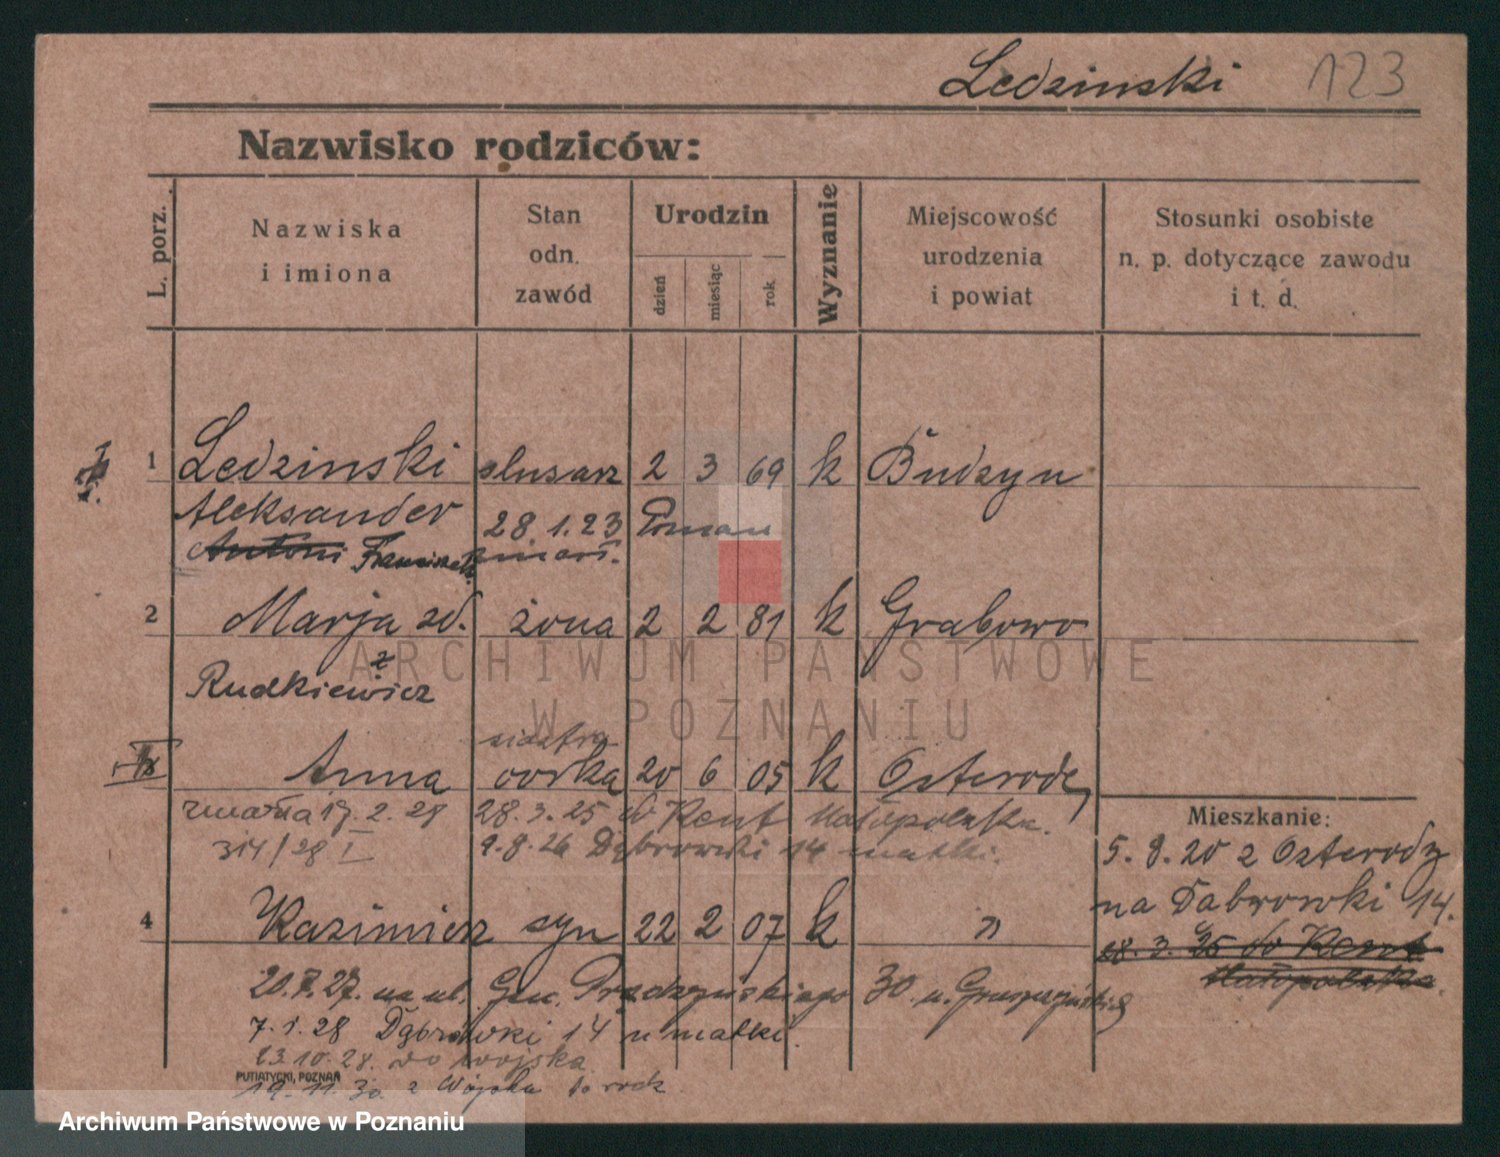 Ledzinski 123
Nazwisko rodziców:
L. porz.
Nazwiska
i imiona
Stan
odn.
zawód
Urodzin
dzień
miesiąc
rok
Wyznanie
Miejscowość
urodzenia
i powiat
Stosunki osobiste
n. p. dotyczące zawodu
i t. d.
1 Ledzinski slusarz 2 3 69 k Budzyn
Aleksander 28.1.23 Poznan
Antoni Franciszek zmarł.
2 Marja zd. żona 2 2 81 k Grabowo
Rudkiewicz
siostra
Anna corka 20 6 05 k Osterode
zmarła 17.2.28 28.3.25 do Kent Małopolska.
314/28 I 9.8.26 Dąbrowski 14 matki.
Mieszkanie:
5.8.20 z Osterody
na Dabrowski 14.
28.3.25 do Kent
Małopolska.
4 Kazimierz syn 22 2 07 k "
20.X.27. na ul. Gen. Prądzyńskiego 30 u
7.1.28 Dąbrowski 14 u matki.
23.10.28. do wojska
PUTIATYCKI, POZNAŃ
19.11.30. z Wojska do rodz
ARCHIWUM PAŃSTWOWE
W POZNANIU
Archiwum Państwowe w Poznaniu